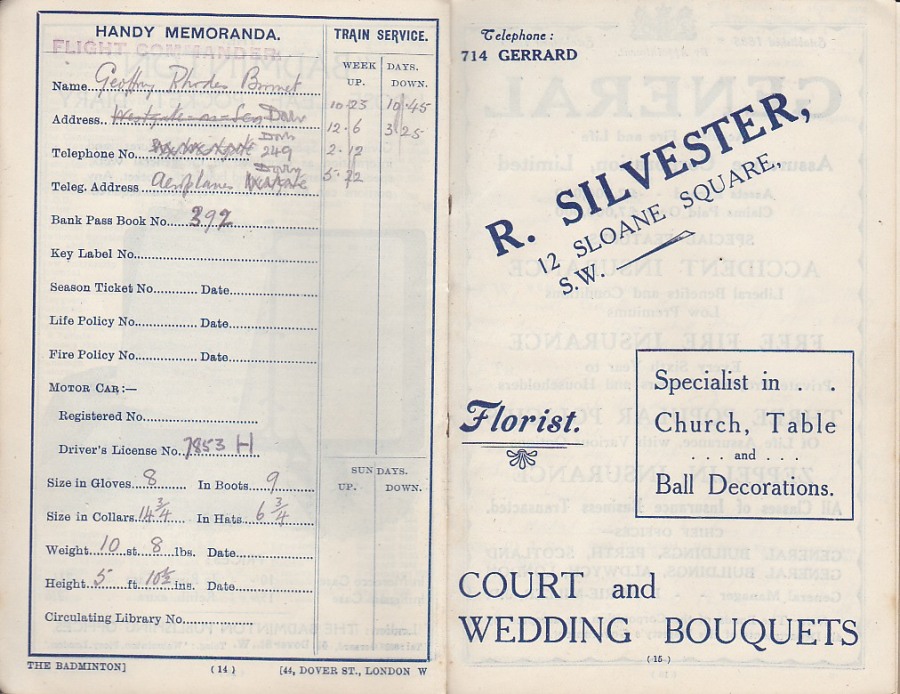 HANDY MEMORANDA.
FLIGHT COMMANDER.
Name Geoffrey Rhodes
Address.. Westgate-on-Sea
Telephone No. 249
Teleg. Address Aeroplanes
Bank Pass Book No. 392
Key Label No.
Season Ticket No. Date
Life Policy No. Date
Fire Policy No. Date
MOTOR CAR:—
Registered No.
Driver's License No. 7853 H
Size in Gloves 8 In Boots 9
Size in Collars 14 3/4 In Hats 6 3/4
Weight 10 st. 8 lbs. Date
Height 5 ft. 10½ ins. Date
Circulating Library No.
TRAIN SERVICE.
WEEK DAYS.
UP. DOWN.
10.23 10.45
12.6 3.25
2.12
5.
SUN DAYS.
UP. DOWN.
THE BADMINTON] (14) [44, DOVER ST., LONDON W
Telephone:
714 GERRARD
R. SILVESTER,
12 SLOANE SQUARE,
S.W.
Florist.
Specialist in . .
Church, Table
. . . . and . . .
Ball Decorations.
COURT and
WEDDING BOUQUETS
(15)